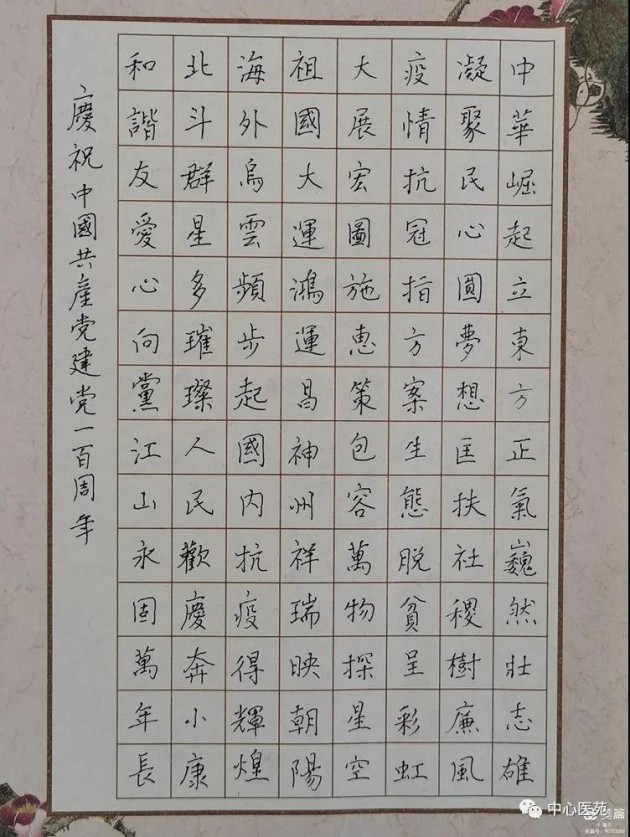 中華崛起立東方正氣巍然壯志雄
凝聚民心圓夢想匡扶社稷樹廉風
疫情抗冠指方案生態脱貧呈彩虹
大展宏圖施惠策包容萬物探星空
祖國大運鴻運昌神州祥瑞映朝陽
海外烏雲頻步起國内抗疫得輝煌
北斗群星多璀璨人民歡慶奔小康
和諧友愛心向黨江山永固萬年長
慶祝中國共產党建党一百周年
中心医苑
美篇